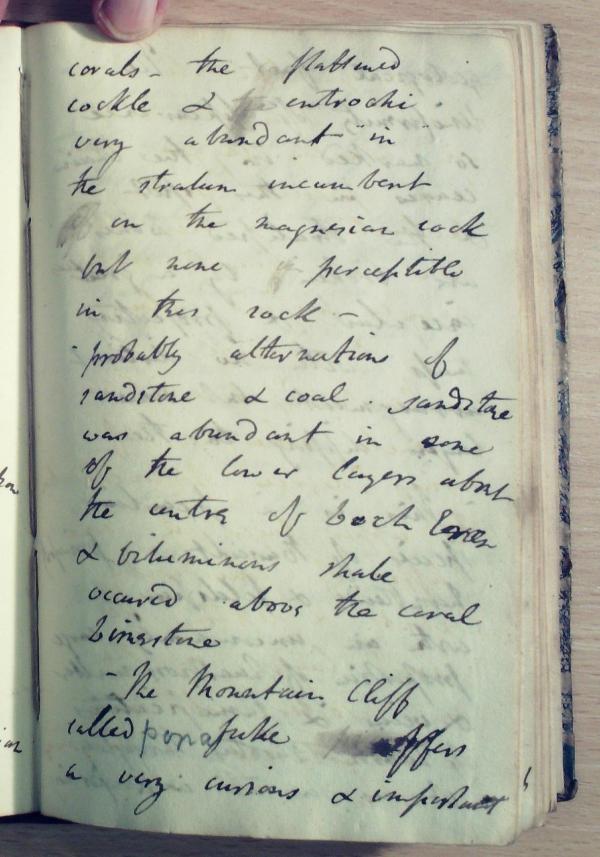 corals - the flattened
cockle & entrochi
very abundant "in"
the stratum incumbent
on the magnesian rock
but none perceptible
in this rock -
- probably alternations of
sandstone & coal. sandstone
was abundant in some
of the lower layers about
the centre of Loch Earn
& bituminous shale
occured above the coral
limestone
- The Mountain Cliff
called offers
a very curious & important